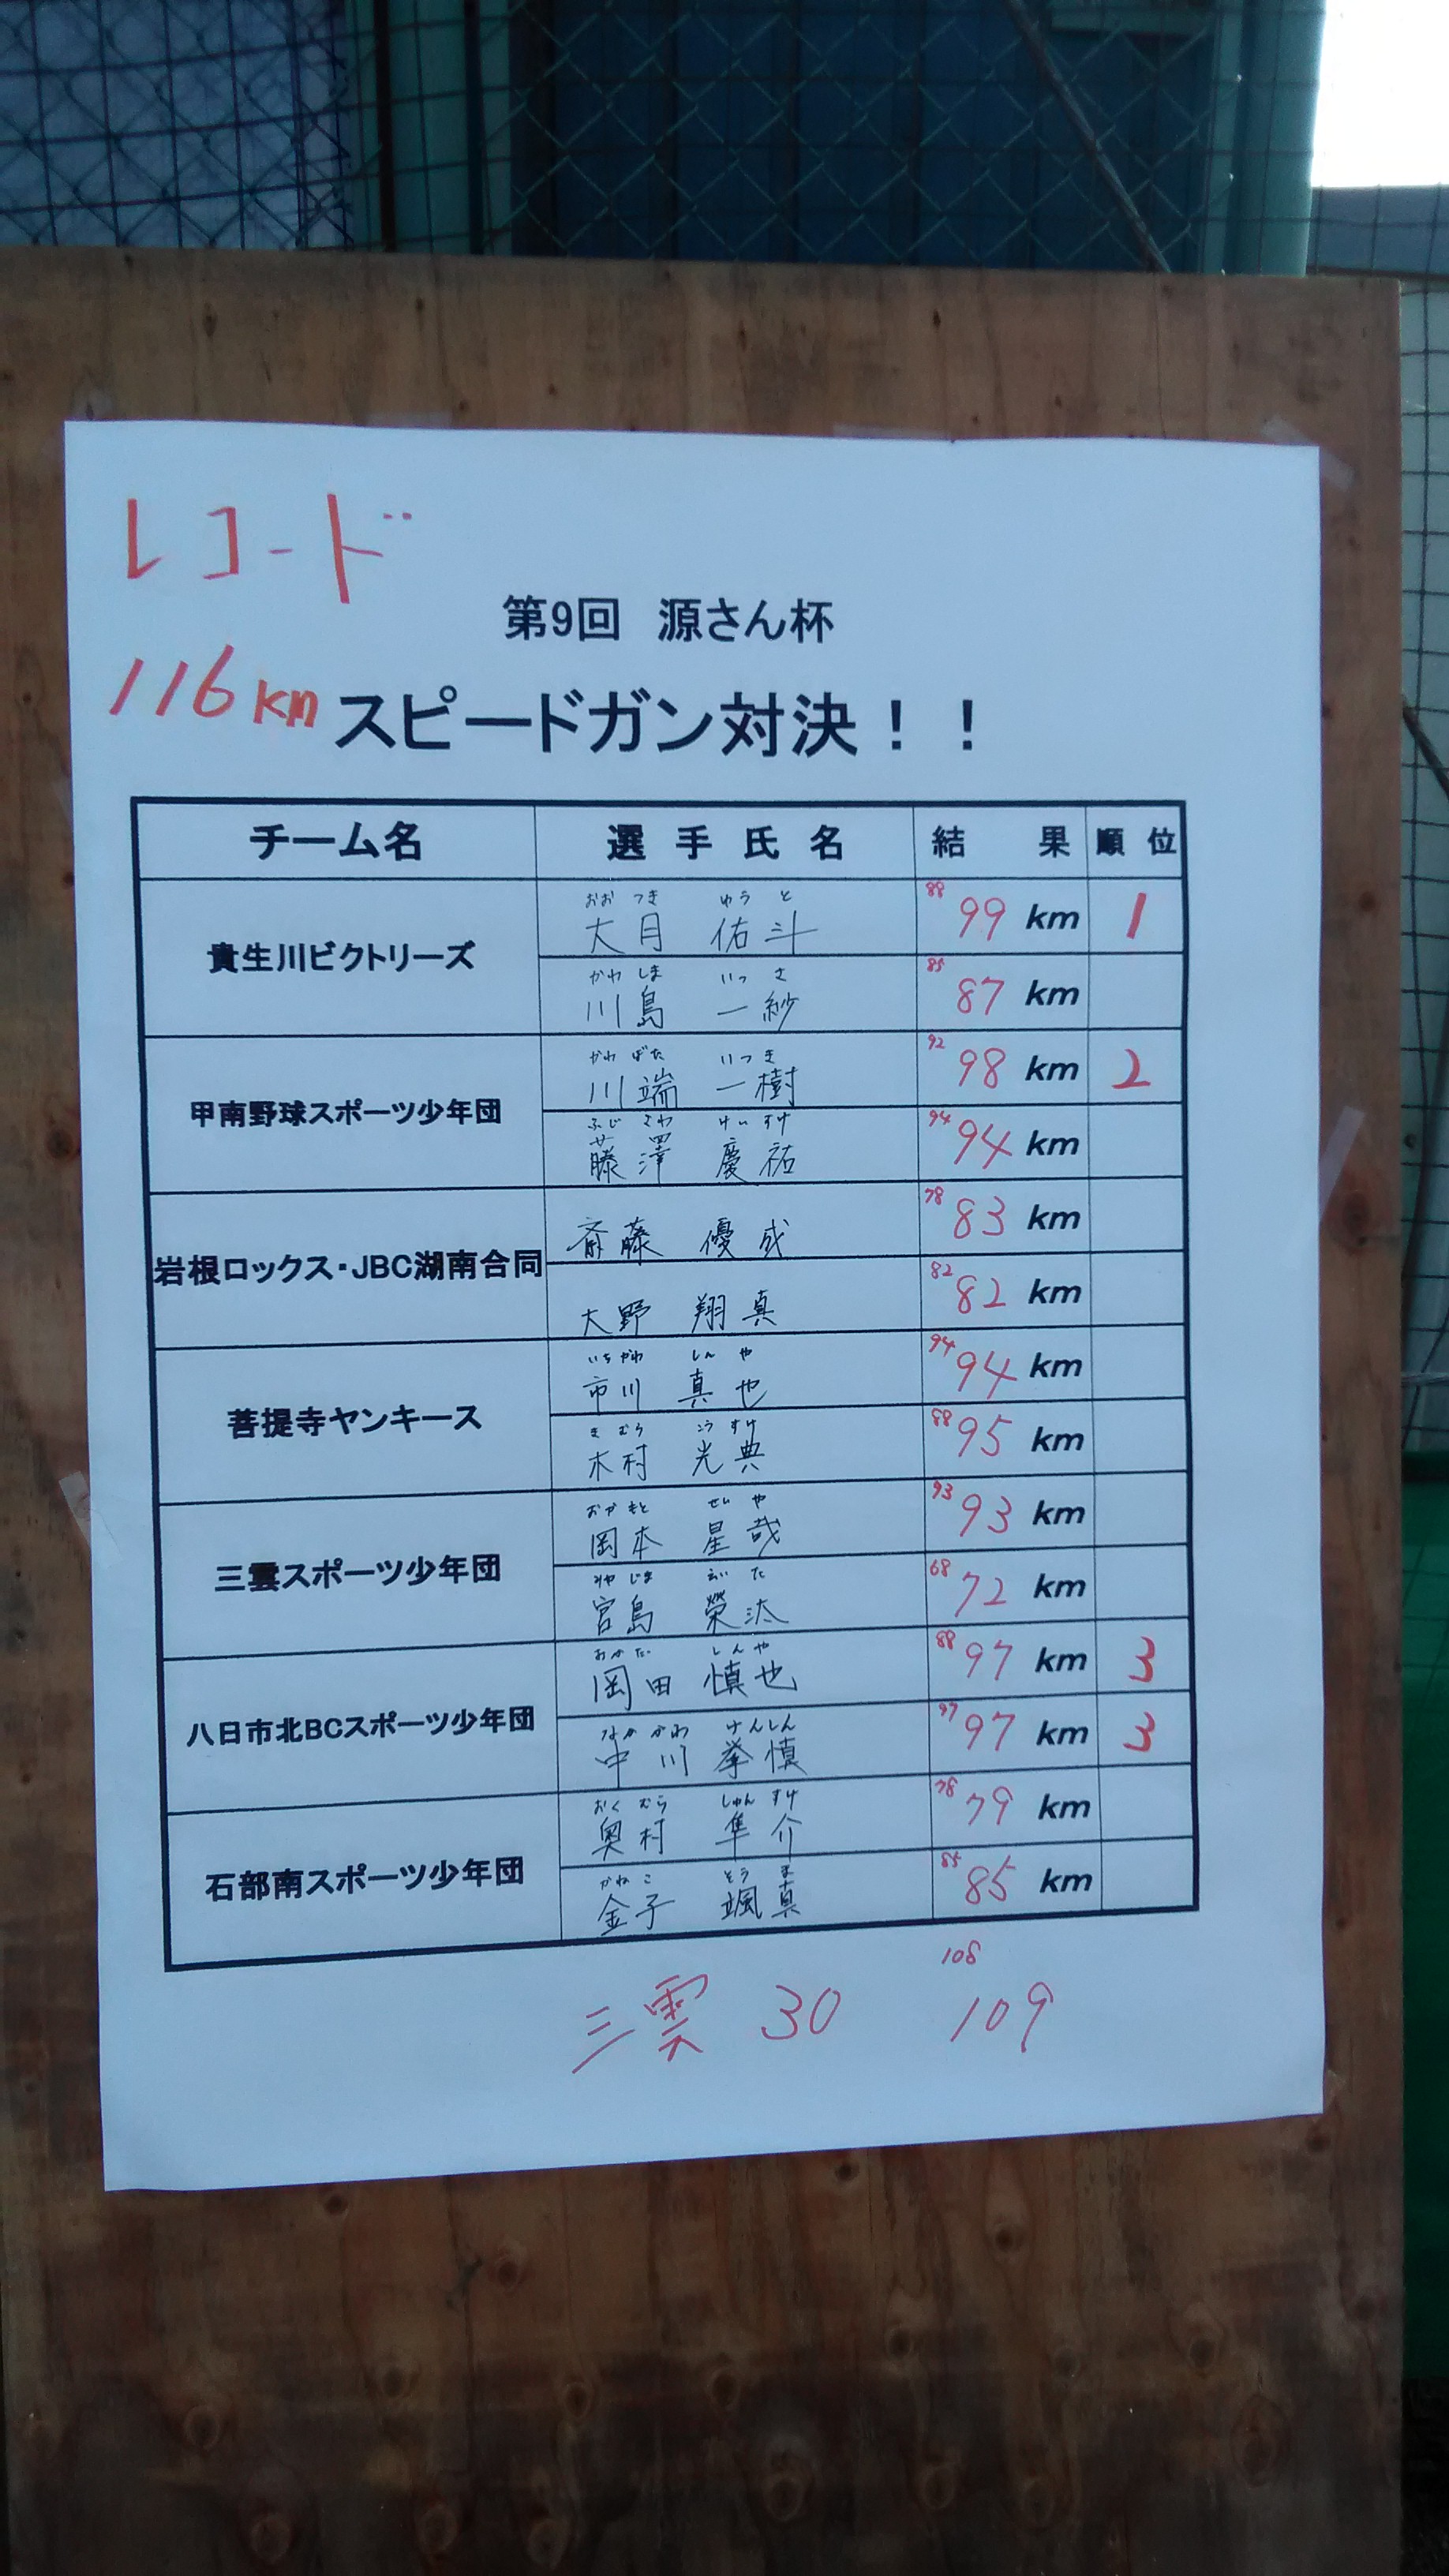 レコード
第9回 源さん杯
116km
スピードガン対決！！
チーム名 選手氏名 結果 順位
貴生川ビクトリーズ
おおつき ゆうと
大月 佑斗 88 99 km 1
かわしま いっさ
川島 一紗 85 87 km
甲南野球スポーツ少年団
かわばた いつき
川端 一樹 92 98 km 2
ふじさわ けいすけ
藤澤 慶祐 94 94 km
岩根ロックス・JBC湖南合同
斎藤 優成 78 83 km
大野 翔真 82 82 km
菩提寺ヤンキース
いちかわ しんや
市川 真也 94 94 km
きむら こうすけ
木村 光典 88 95 km
三雲スポーツ少年団
おかもと せいや
岡本 星哉 93 93 km
みやじま えいた
宮島 榮汰 68 72 km
八日市北BCスポーツ少年団
おかだ しんや
岡田 慎也 88 97 km 3
なかがわ けんしん
中川 拳慎 97 97 km 3
石部南スポーツ少年団
おくむら しゅんすけ
奥村 隼介 78 79 km
かねこ とうま
金子 颯真 85 85 km
108
三雲 30 109